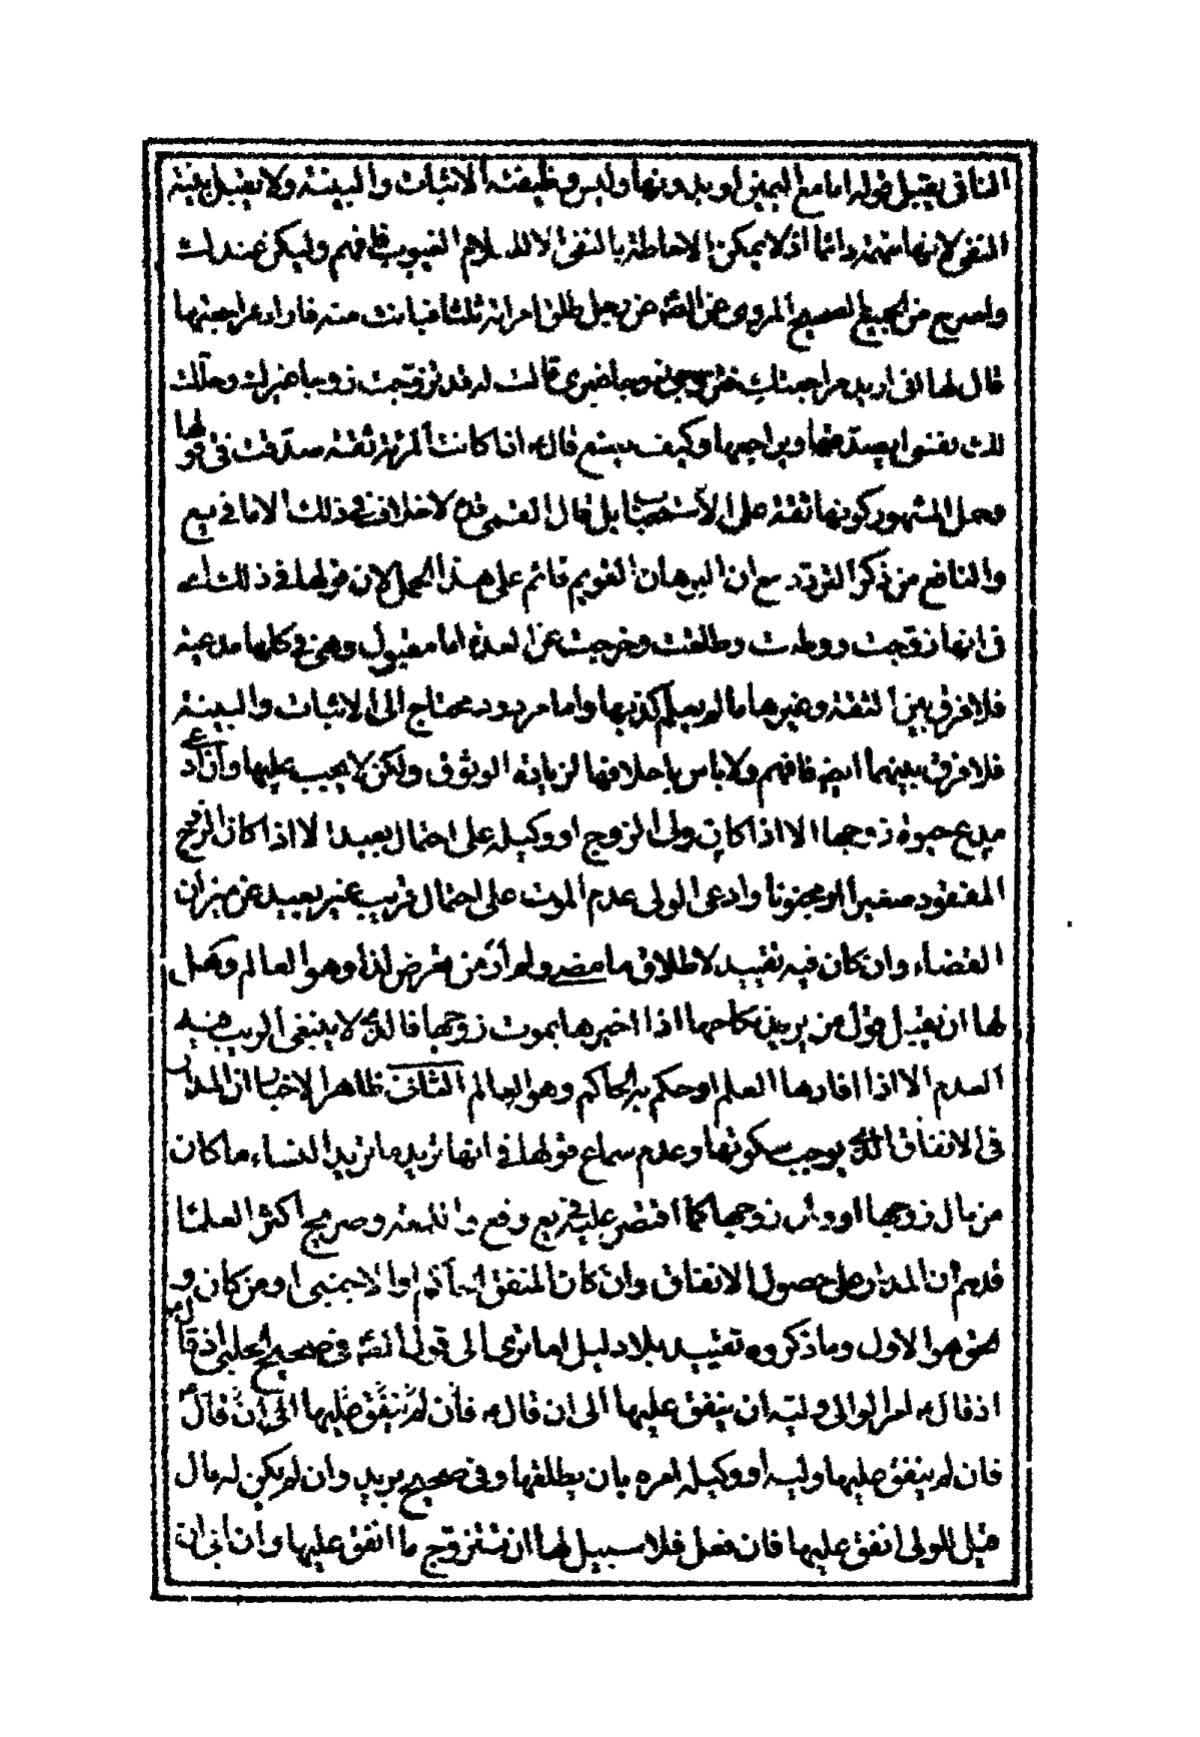 النافى يقبل قوله اما مع اليمين او بدونها وليس وظيفته الاثبات والبينة ولا يقبل بينة
النفى لانها متهمة دائما اذ لا يمكن الاحاطة بالنفى الا لله علام الغيوب فافهم وليكن عندك
واصرح من الجميع الصحيح المروى عن فى رجل طلق امراته ثلثا فبانت منه فاراد مراجعتها
قال لها انى اريد مراجعتك فتزوجى زوجا غيرى قالت له قد تزوجت زوجا غيرك وحللت
لك نفسى ايصدقها ويراجعها وكيف يصنع قال اذا كانت المرئة ثقة صدقت فى قولها
وحمل المشهور كونها ثقة على الاستحباب بل قال القمى قده لا خلاف فى ذلك الا ما فى
والنافع من ذكر التردد مع ان البرهان القويم قائم على هذا الحمل لان قولها فى ذلك اى
فى انها زوجت ووطئت وطلقت وخرجت عن العدة اما مقبول وهى فى كلها مدعية
فلا فرق بين الثقة وغيرها ما لم يعلم كذبها واما مردود محتاج الى الاثبات والبينة
فلا فرق بينهما ايضا فافهم ولا باس باحلافها لزيادة الوثوق ولكن لا يجب عليها وان ادعى
مدع حيوة زوجها الا اذا كان ولى الزوج او وكيله على احتمال بعيد الا اذا كان الزوج
المفقود صغيرا او مجنونا وادعى الولى عدم الموت على احتمال قريب غير بعيد عن ميزان
القضاء وان كان فيه تقييد لاطلاق ما مضى ولم ار من تعرض لذا وهو العالم وهل
لها ان يقبل قول من يريد نكاحها اذا اخبرها بموت زوجها قال لا ينبغى الريب فيه
العدم الا اذا افادها العلم او حكم به الحاكم وهو العالم الثانى ظاهر الاخبار ان المدار
فى الانفاق الذى يوجب سكوتها وعدم سماع قولها فى انها تريد ما تريد النساء ما كان
من مال زوجها او ولى زوجها كما اقتصر عليه فى يع وفع واللمعة وصريح اكثر العلماء
قدهم ان المدار على حصول الانفاق وان كان المنفق او الاجنبى او من كان و
هو الاول وما ذكروه تقييد بلا دليل اما ترى الى قول فى صحيح الحلبى اذ قال
اذ قال امر الوالى وليه ان ينفق عليها الى ان قال فان لم ينفق عليها الى ان قال
فان لم ينفق عليها وليه او وكيله امره بان يطلقها وفى صحيح بريد وان لم يكن له مال
قيل للولى انفق عليها فان فعل فلا سبيل لها ان تتزوج ما انفق عليها وان ابى ان